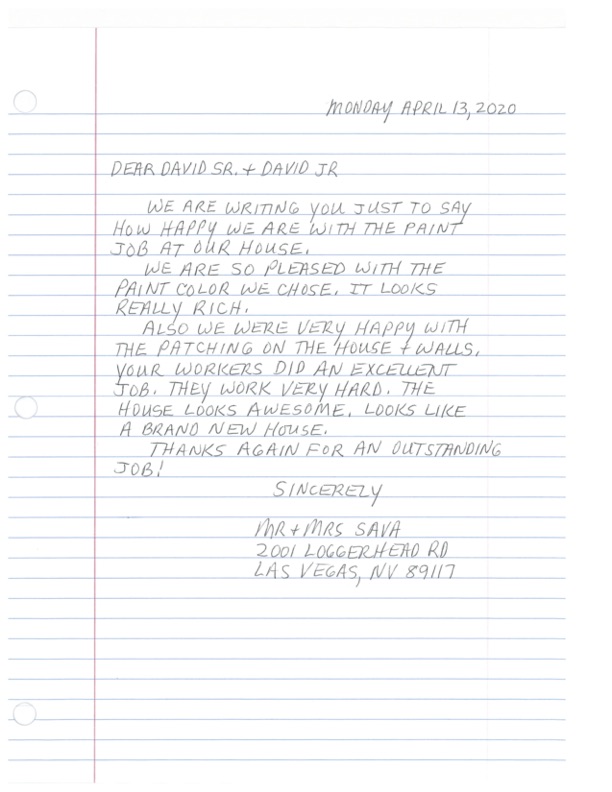 MONDAY APRIL 13, 2020
DEAR DAVID SR. + DAVID JR
WE ARE WRITING YOU JUST TO SAY
HOW HAPPY WE ARE WITH THE PAINT
JOB AT OUR HOUSE.
WE ARE SO PLEASED WITH THE
PAINT COLOR WE CHOSE. IT LOOKS
REALLY RICH.
ALSO WE WERE VERY HAPPY WITH
THE PATCHING ON THE HOUSE + WALLS.
YOUR WORKERS DID AN EXCELLENT
JOB. THEY WORK VERY HARD. THE
HOUSE LOOKS AWESOME. LOOKS LIKE
A BRAND NEW HOUSE.
THANKS AGAIN FOR AN OUTSTANDING
JOB!
SINCERELY
MR + MRS SAVA
2001 LOGGERHEAD RD
LAS VEGAS, NV 89117